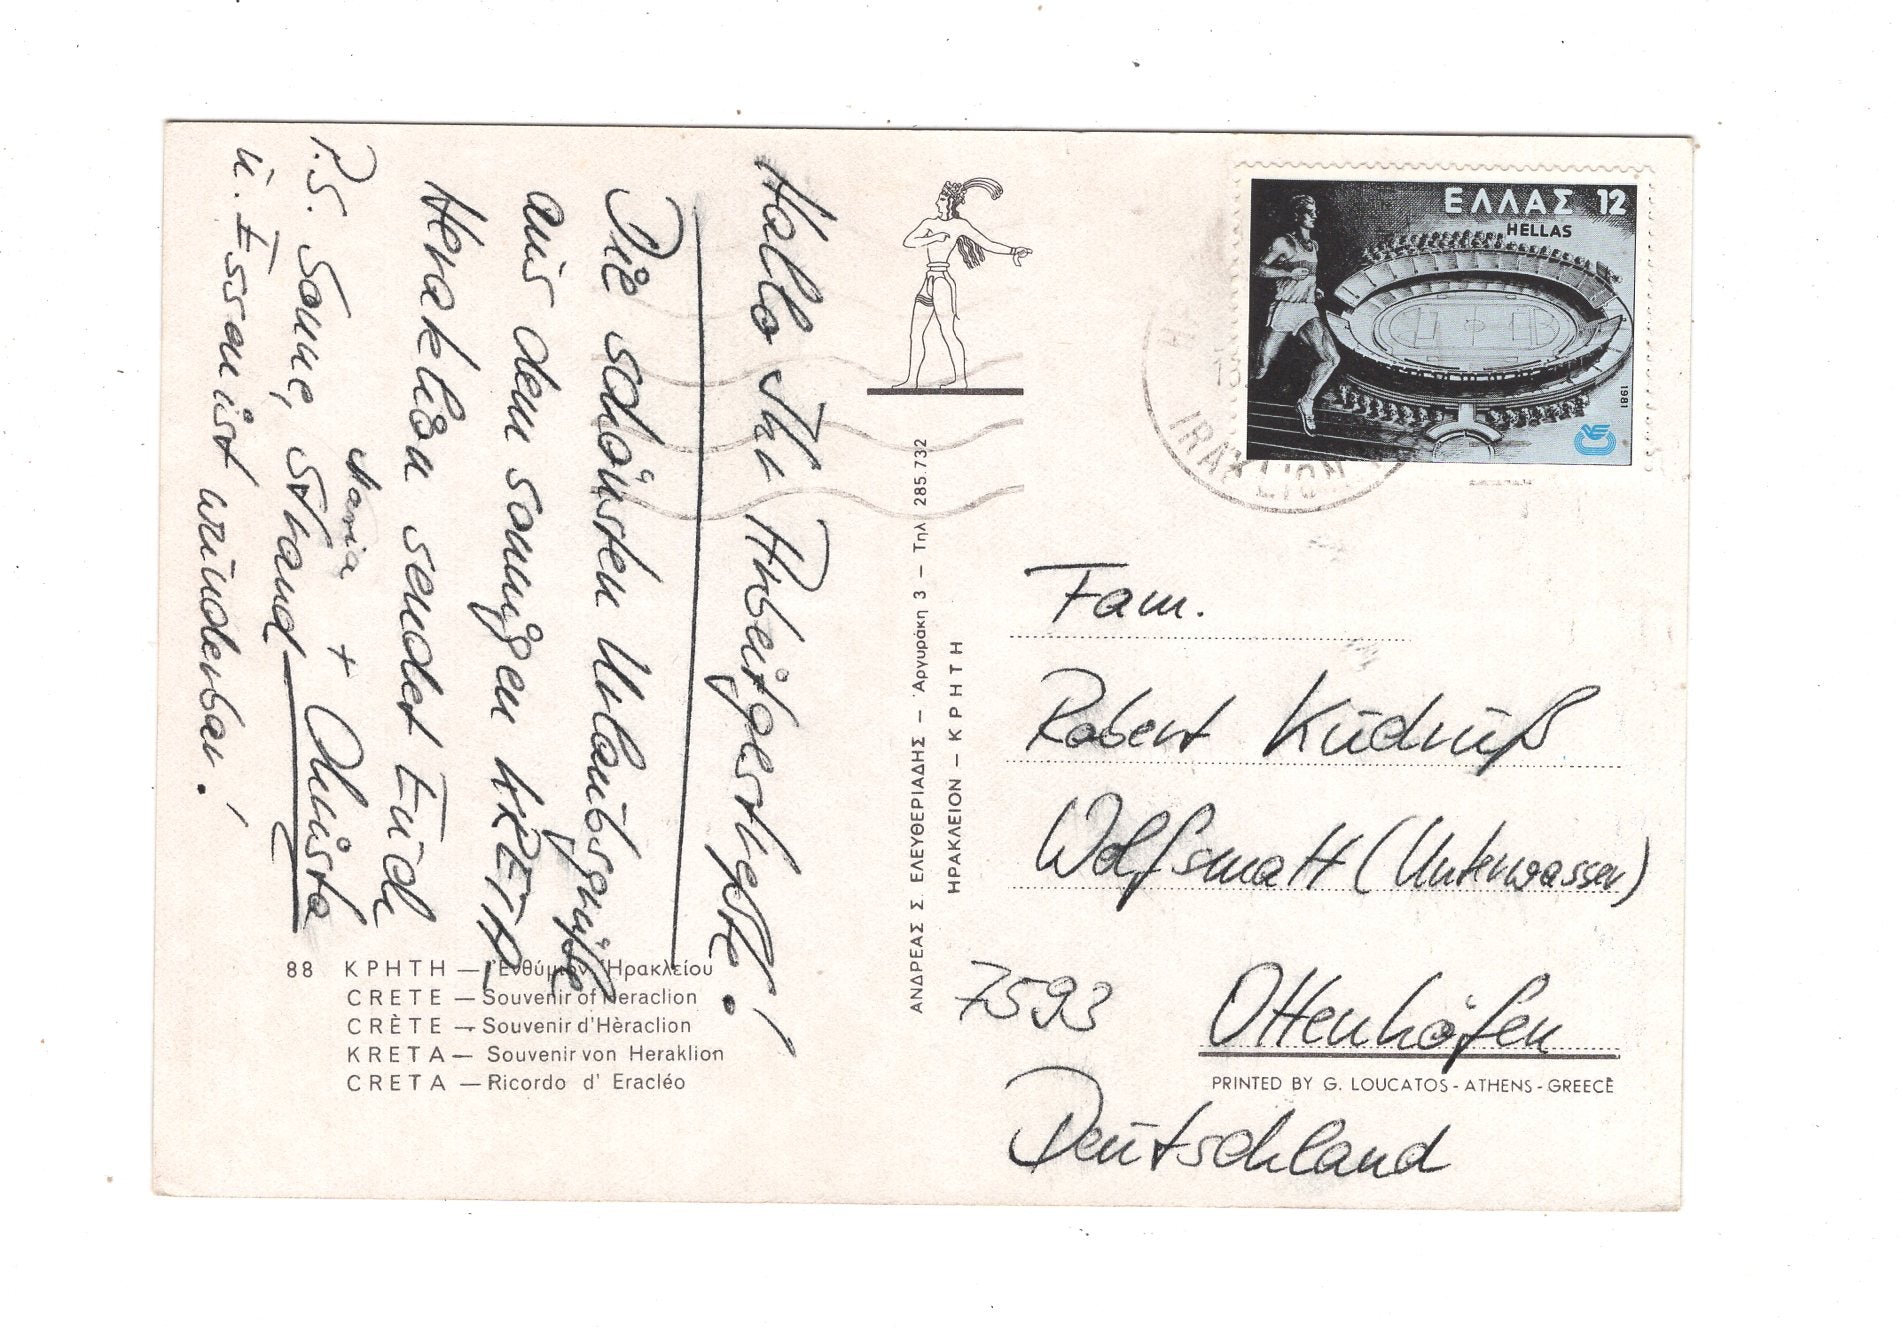 Hallo Ihr Arbeitgestreßte!
Die schönsten Urlaubsgrüße
aus dem sonnigen KRETA,
Heraklion sendet Euch
Maria + Christa
P.S. Sonne, Strand
u. Essen ist wunderbar!
88 ΚΡΗΤΗ — Ἐνθύμιον Ἡρακλείου
CRETE — Souvenir of Heraclion
CRÈTE — Souvenir d'Hèraclion
KRETA — Souvenir von Heraklion
CRETA — Ricordo d' Eracléo
ΑΝΔΡΕΑΣ Σ ΕΛΕΥΘΕΡΙΑΔΗΣ — Ἀργυράκη 3 — Τηλ 285.732
ΗΡΑΚΛΕΙΟΝ — ΚΡΗΤΗ
ΕΛΛΑΣ 12
HELLAS
1981
IRAKLION
Fam.
Robert
Wolfsmatt (Unterwasser)
7593 Ottenhöfen
PRINTED BY G. LOUCATOS - ATHENS - GREECE
Deutschland